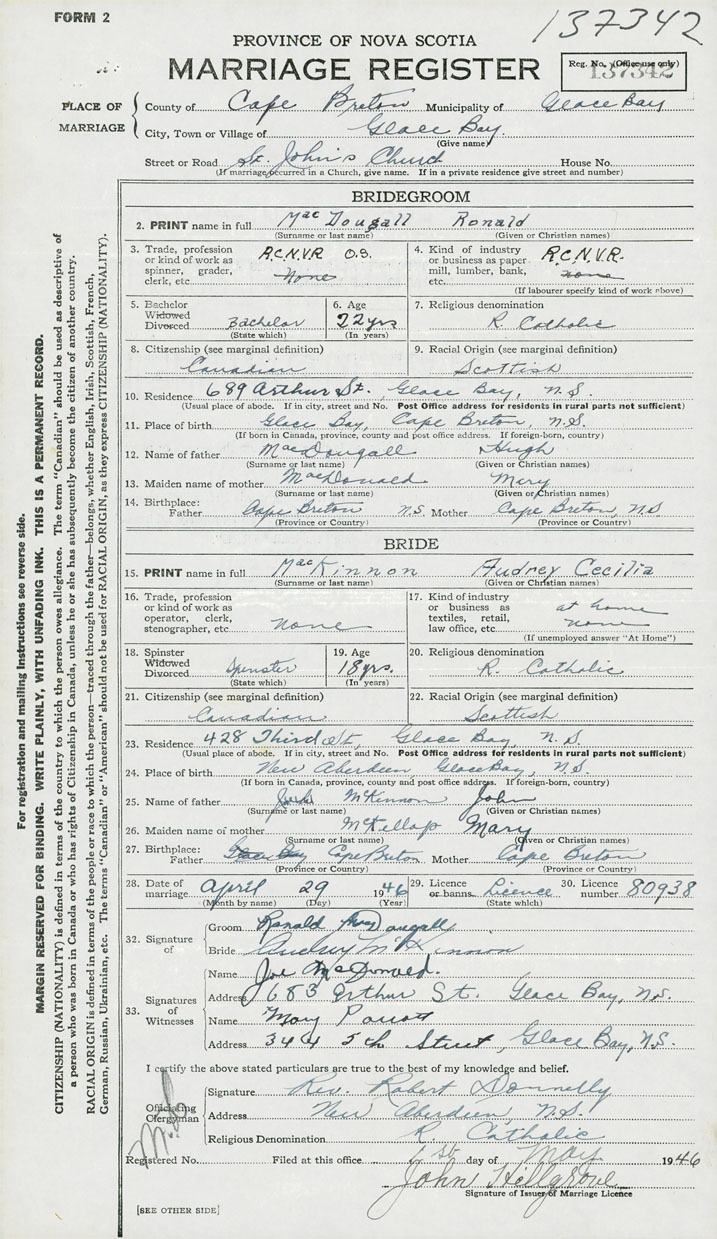 FORM 2
137342
PROVINCE OF NOVA SCOTIA
MARRIAGE REGISTER
Reg. No. (Office use only)
137342
PLACE OF MARRIAGE
County of Cape Breton Municipality of Glace Bay
City, Town or Village of Glace Bay.
(Give name)
Street or Road St. John's Church House No.
(If marriage occurred in a Church, give name. If in a private residence give street and number)
BRIDEGROOM
2. PRINT name in full MacDougall Ronald
(Surname or last name) (Given or Christian names)
3. Trade, profession or kind of work as spinner, grader, clerk, etc. R.C.N.V.R. O.S. None
4. Kind of industry or business as paper mill, lumber, bank, etc. R.C.N.V.R. none
(If labourer specify kind of work above)
5. Bachelor Widowed Divorced Bachelor
(State which)
6. Age 22 yrs
(In years)
7. Religious denomination R. Catholic
8. Citizenship (see marginal definition) Canadian
9. Racial Origin (see marginal definition) Scottish
10. Residence 689 Arthur St., Glace Bay, N.S.
(Usual place of abode. If in city, street and No. Post Office address for residents in rural parts not sufficient)
11. Place of birth Glace Bay, Cape Breton, N.S.
(If born in Canada, province, county and post office address. If foreign-born, country)
12. Name of father MacDougall Hugh
(Surname or last name) (Given or Christian names)
13. Maiden name of mother MacDonald Mary
(Surname or last name) (Given or Christian names)
14. Birthplace: Father Cape Breton N.S. Mother Cape Breton, N.S.
(Province or Country) (Province or Country)
BRIDE
15. PRINT name in full MacKinnon Audrey Cecilia
(Surname or last name) (Given or Christian names)
16. Trade, profession or kind of work as operator, clerk, stenographer, etc. none
17. Kind of industry or business as textiles, retail, law office, etc. at home none
(If unemployed answer "At Home")
18. Spinster Widowed Divorced Spinster
(State which)
19. Age 18 yrs.
(In years)
20. Religious denomination R. Catholic
21. Citizenship (see marginal definition) Canadian
22. Racial Origin (see marginal definition) Scottish
23. Residence 428 Third St., Glace Bay, N.S.
(Usual place of abode. If in city, street and No. Post Office address for residents in rural parts not sufficient)
24. Place of birth New Aberdeen, Glace Bay, N.S.
(If born in Canada, province, county and post office address. If foreign-born, country)
25. Name of father McKinnon John
(Surname or last name) (Given or Christian names)
26. Maiden name of mother McKellop Mary
(Surname or last name) (Given or Christian names)
27. Birthplace: Father Glace Bay Cape Breton Mother Cape Breton
(Province or Country) (Province or Country)
28. Date of marriage April 29 1946
(Month by name) (Day) (Year)
29. Licence or banns Licence
(State which)
30. Licence number 80938
32. Signature of
Groom Ronald MacDougall
Bride Audrey McKinnon
33. Signatures of Witnesses
Name Joe McDonald.
Address 683 Arthur St. Glace Bay, N.S.
Name Mary
Address 344 5th Street, Glace Bay, N.S.
I certify the above stated particulars are true to the best of my knowledge and belief.
Officiating Clergyman
Signature Rev. Robert Donnelly
Address New Aberdeen, N.S.
Religious Denomination R. Catholic
Registered No. Filed at this office 1st day of May 1946
John Hillgrove
Signature of Issuer of Marriage Licence
[SEE OTHER SIDE]
For registration and mailing instructions see reverse side.
MARGIN RESERVED FOR BINDING. WRITE PLAINLY, WITH UNFADING INK. THIS IS A PERMANENT RECORD.
CITIZENSHIP (NATIONALITY) is defined in terms of the country to which the person owes allegiance. The term "Canadian" should be used as descriptive of
a person who was born in Canada or who has rights of Citizenship in Canada, unless he or she has subsequently become the citizen of another country.
RACIAL ORIGIN is defined in terms of the people or race to which the person—traced through the father—belongs, whether English, Irish, Scottish, French,
German, Russian, Ukrainian, etc. The terms "Canadian" or "American" should not be used for RACIAL ORIGIN, as they express CITIZENSHIP (NATIONALITY).